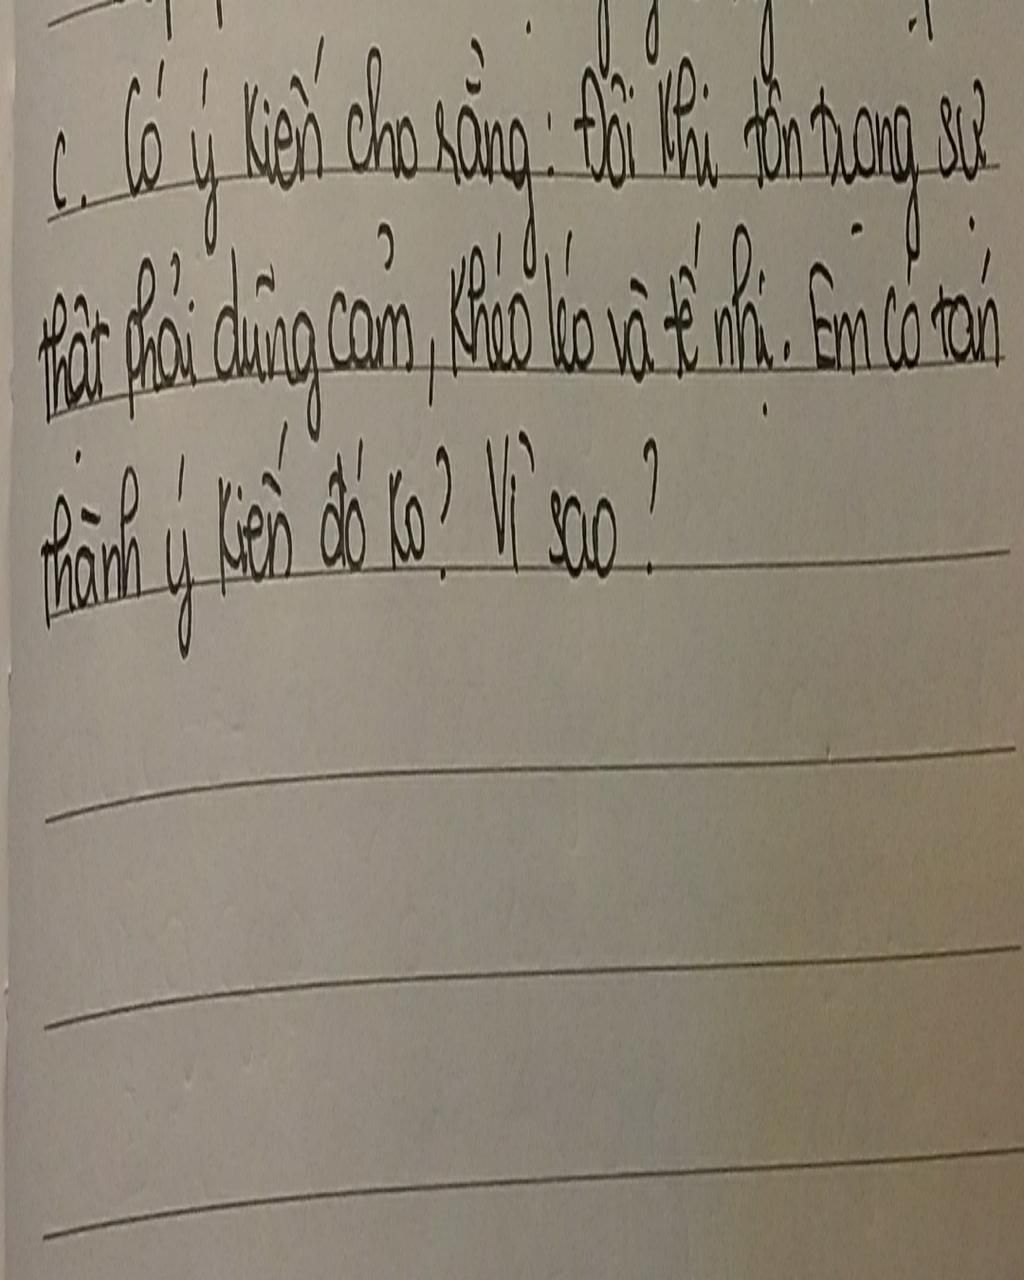 c. Có ý kiến cho rằng: Đôi khi tôn trọng sự
thật phải dũng cảm, khéo léo và tế nhị. Em có tán
thành ý kiến đó ko? Vì sao?